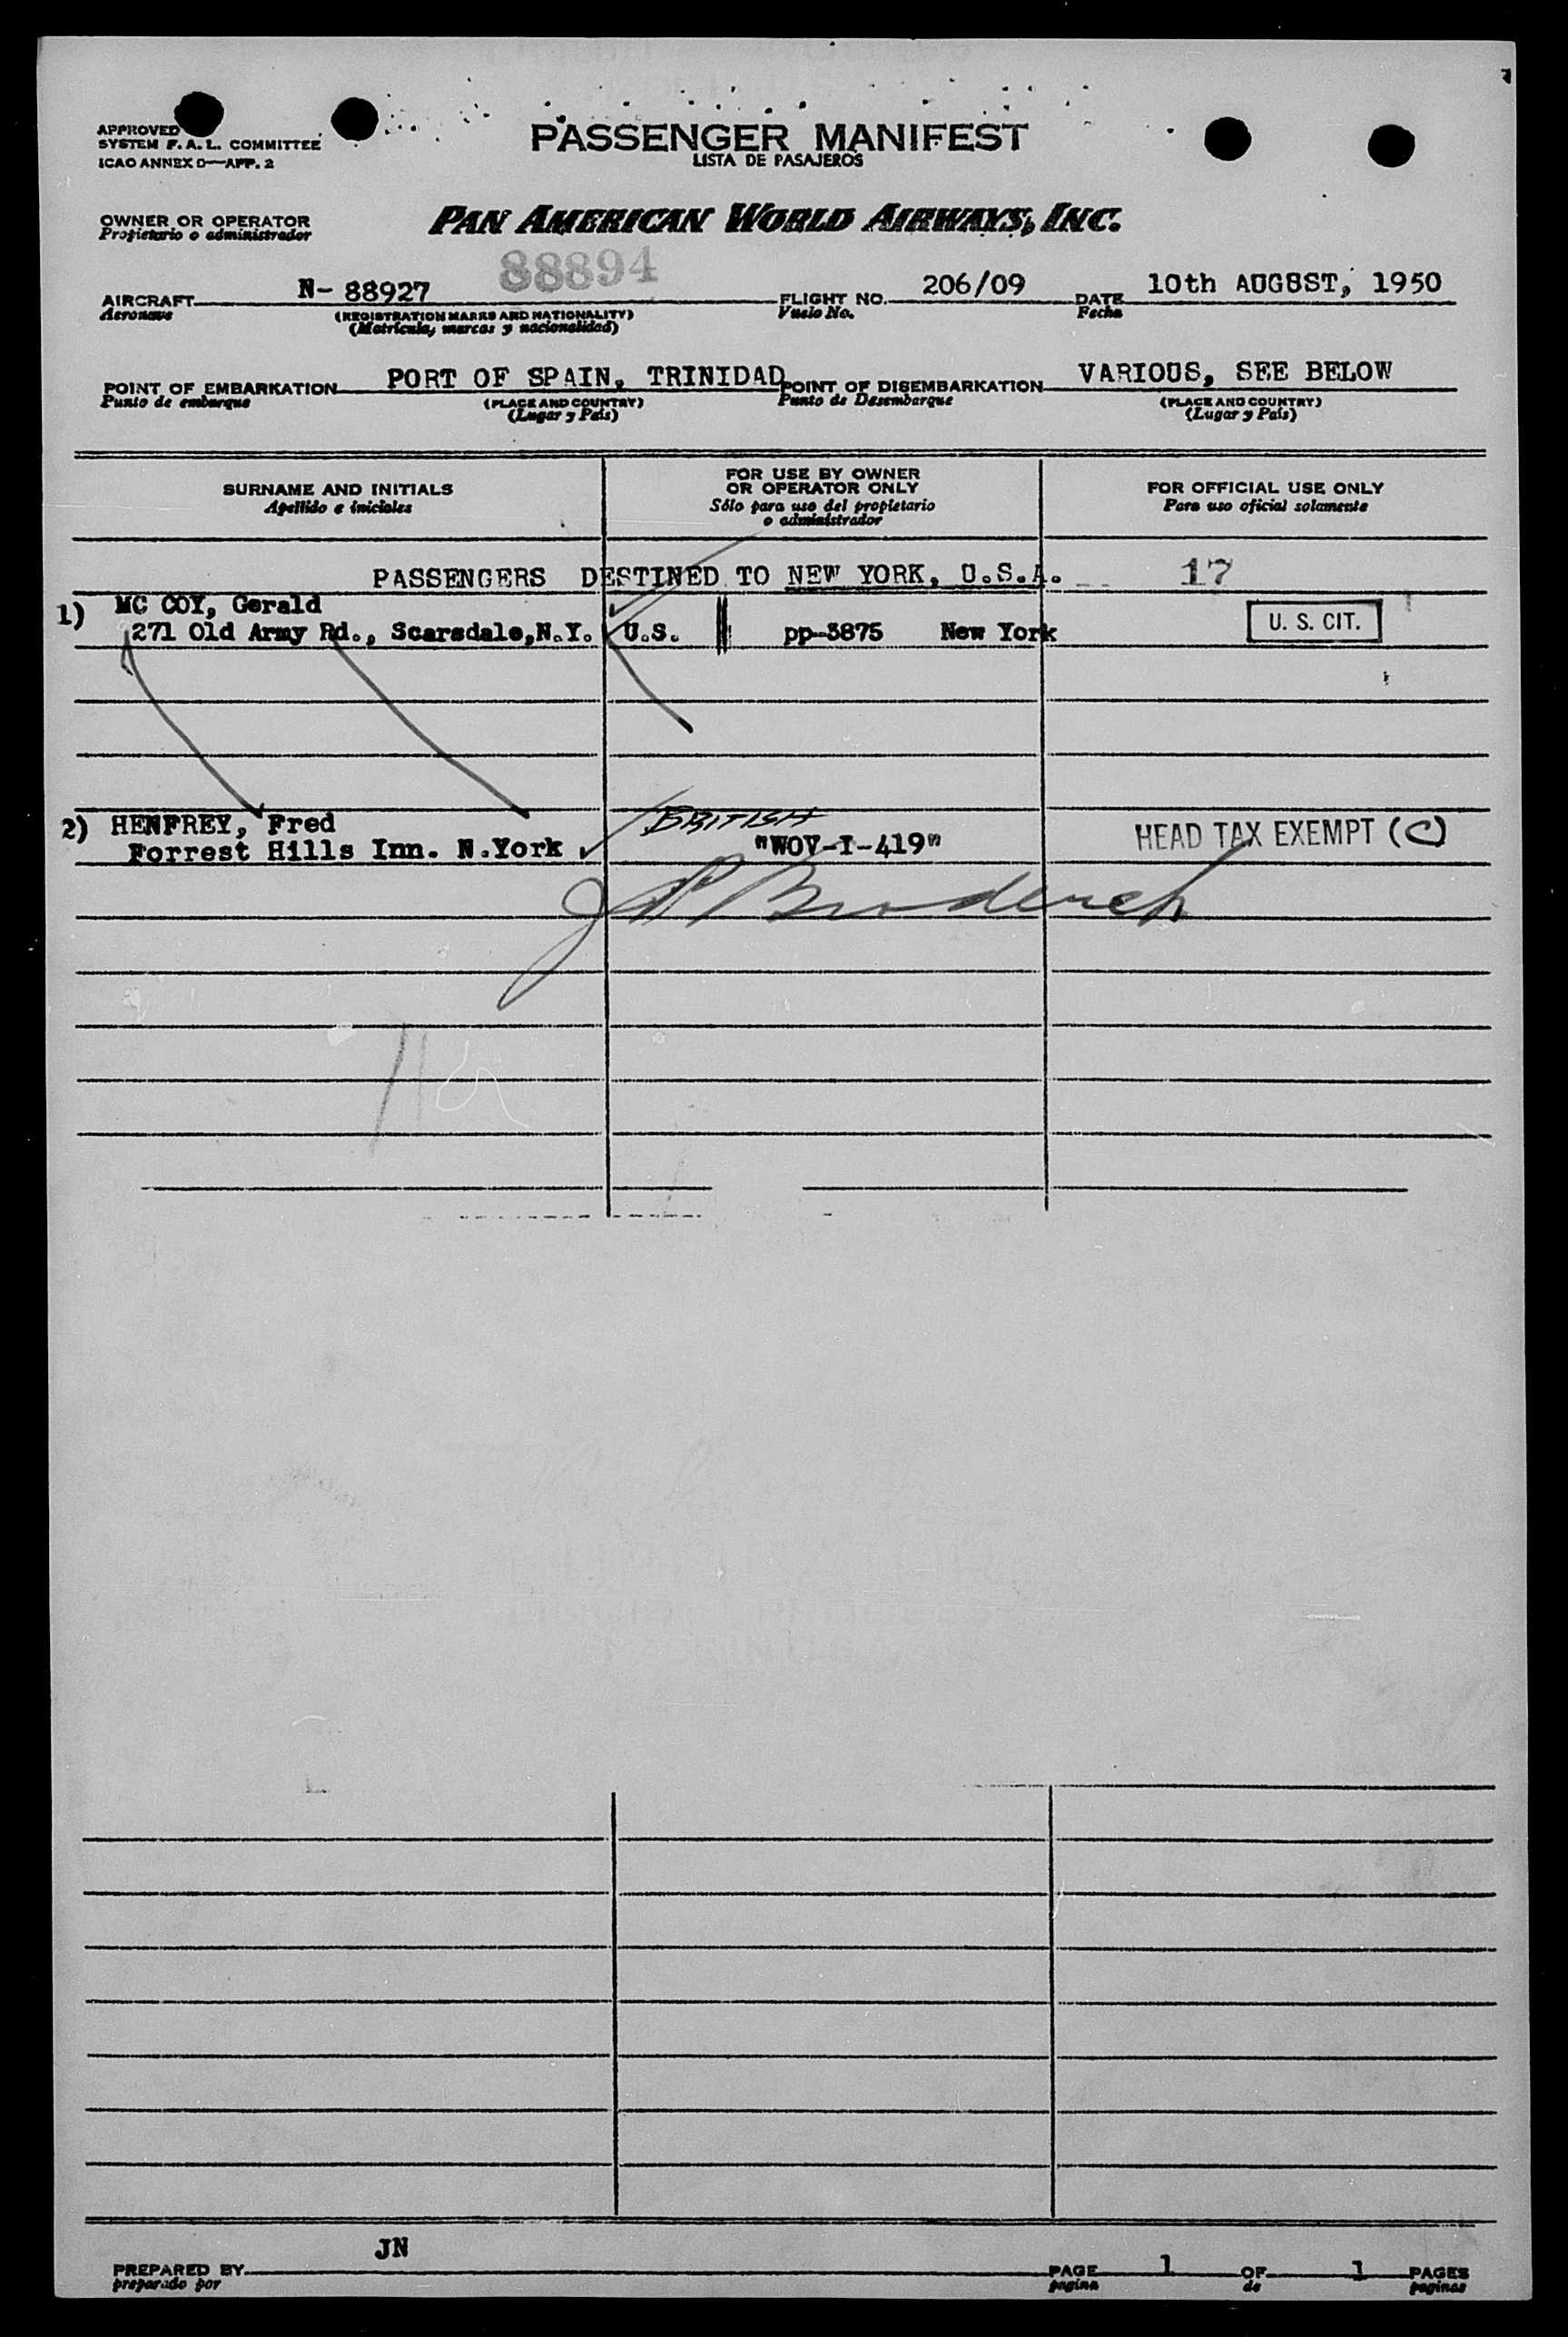 APPROVED
SYSTEM F.A.L. COMMITTEE
ICAO ANNEX D—APP. 2
PASSENGER MANIFEST
LISTA DE PASAJEROS
OWNER OR OPERATOR
Propietario o administrador
PAN AMERICAN WORLD AIRWAYS, INC.
88894
AIRCRAFT N- 88927 FLIGHT NO. 206/09 DATE 10th AUG8ST, 1950
Aeronave (REGISTRATION MARKS AND NATIONALITY) Vuelo No. Fecha
(Matrícula, marcas y nacionalidad)
POINT OF EMBARKATION PORT OF SPAIN, TRINIDAD POINT OF DISEMBARKATION VARIOUS, SEE BELOW
Punto de embarque (PLACE AND COUNTRY) Punto de Desembarque (PLACE AND COUNTRY)
(Lugar y País) (Lugar y País)
SURNAME AND INITIALS
Apellido e iniciales
FOR USE BY OWNER
OR OPERATOR ONLY
Sólo para uso del propietario
o administrador
FOR OFFICIAL USE ONLY
Para uso oficial solamente
PASSENGERS DESTINED TO NEW YORK, U.S.A. 17
1) MC COY, Gerald
271 Old Army Rd., Scarsdale,N.Y. U.S. pp-3875 New York U. S. CIT.
2) HENFREY, Fred BRITISH
Forrest Hills Inn. N.York "WOV-I-419" HEAD TAX EXEMPT (C)
JN
PREPARED BY PAGE 1 OF 1 PAGES
preparado por pagina de paginas